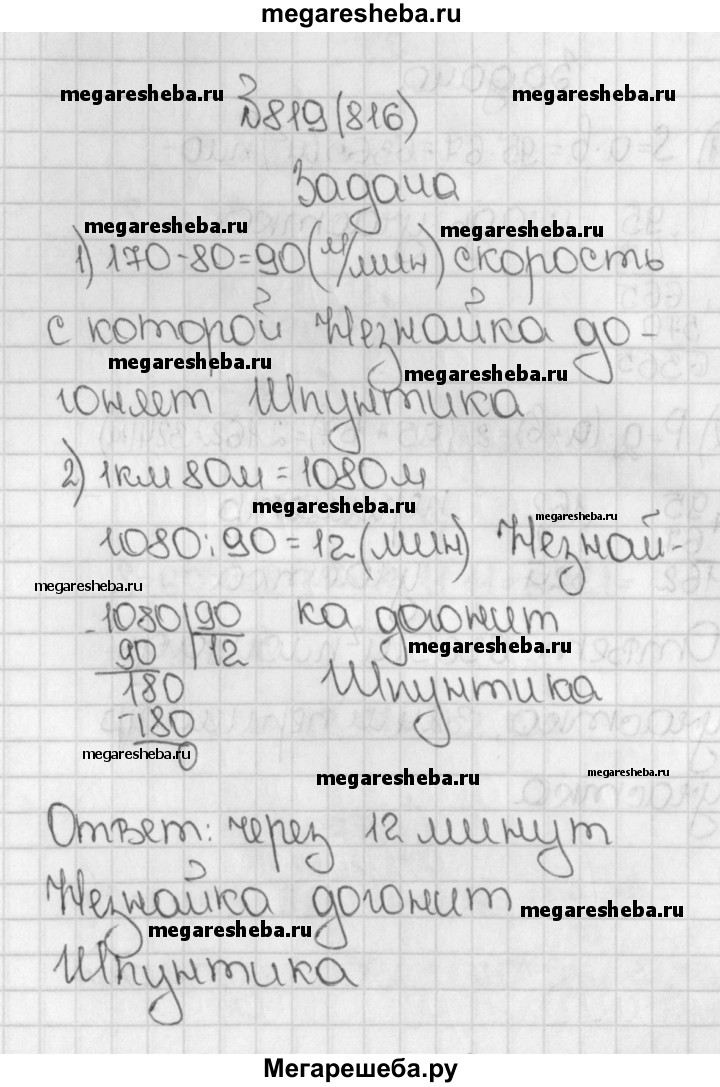 megaresheba.ru
megaresheba.ru megaresheba.ru
№819(816)
Задача
megaresheba.ru megaresheba.ru
1) 170-80=90(м/мин) скорость
с которой Незнайка до-
megaresheba.ru megaresheba.ru
гоняет Шпунтика
2) 1км 80м = 1080м
megaresheba.ru megaresheba.ru
1080:90=12(мин) Незнай-
megaresheba.ru
-1080|90 ка догонит
megaresheba.ru
90 |12
180 Шпунтика
-180
megaresheba.ru 0
megaresheba.ru megaresheba.ru
Ответ: через 12 минут
Незнайка догонит
megaresheba.ru megaresheba.ru
Шпунтика
Мегарешеба.ру